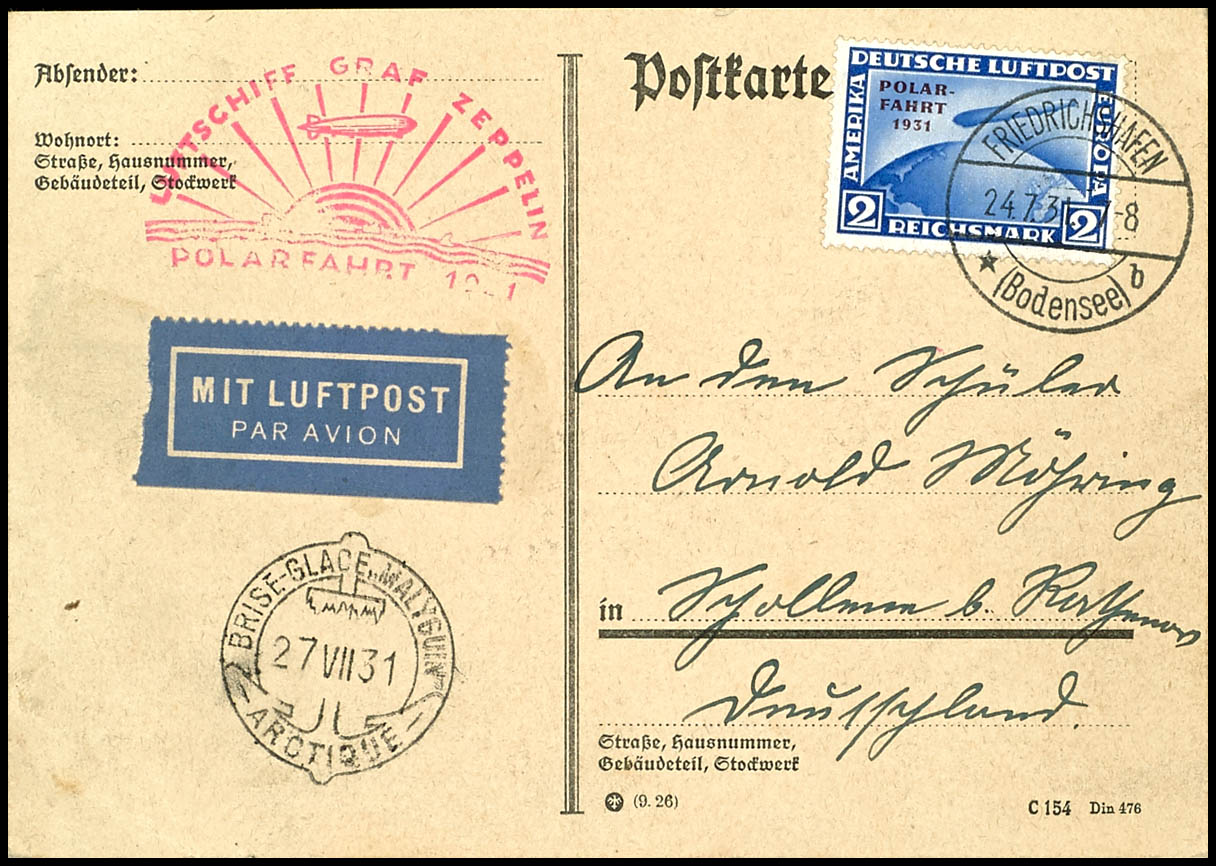 Abſender:
Wohnort:
Straße, Hausnummer,
Gebäudeteil, Stockwerk
LUFTSCHIFF GRAF ZEPPELIN
POLARFAHRT 1931
MIT LUFTPOST
PAR AVION
BRISE-GLACE „MALYGUIN“
27 VII 31
ARCTIQUE
Poſtkarte
DEUTSCHE LUFTPOST
AMERIKA
EUROPA
POLAR-
FAHRT
1931
2 REICHSMARK 2
FRIEDRICHSHAFEN
24.7.31. 7-8
★ (Bodensee) b
An den Schüler
Arnold Möhring
in Schollene b. Rathenow
Deutschland.
Straße, Hausnummer,
Gebäudeteil, Stockwerk
(9. 26)
C 154 Din 476